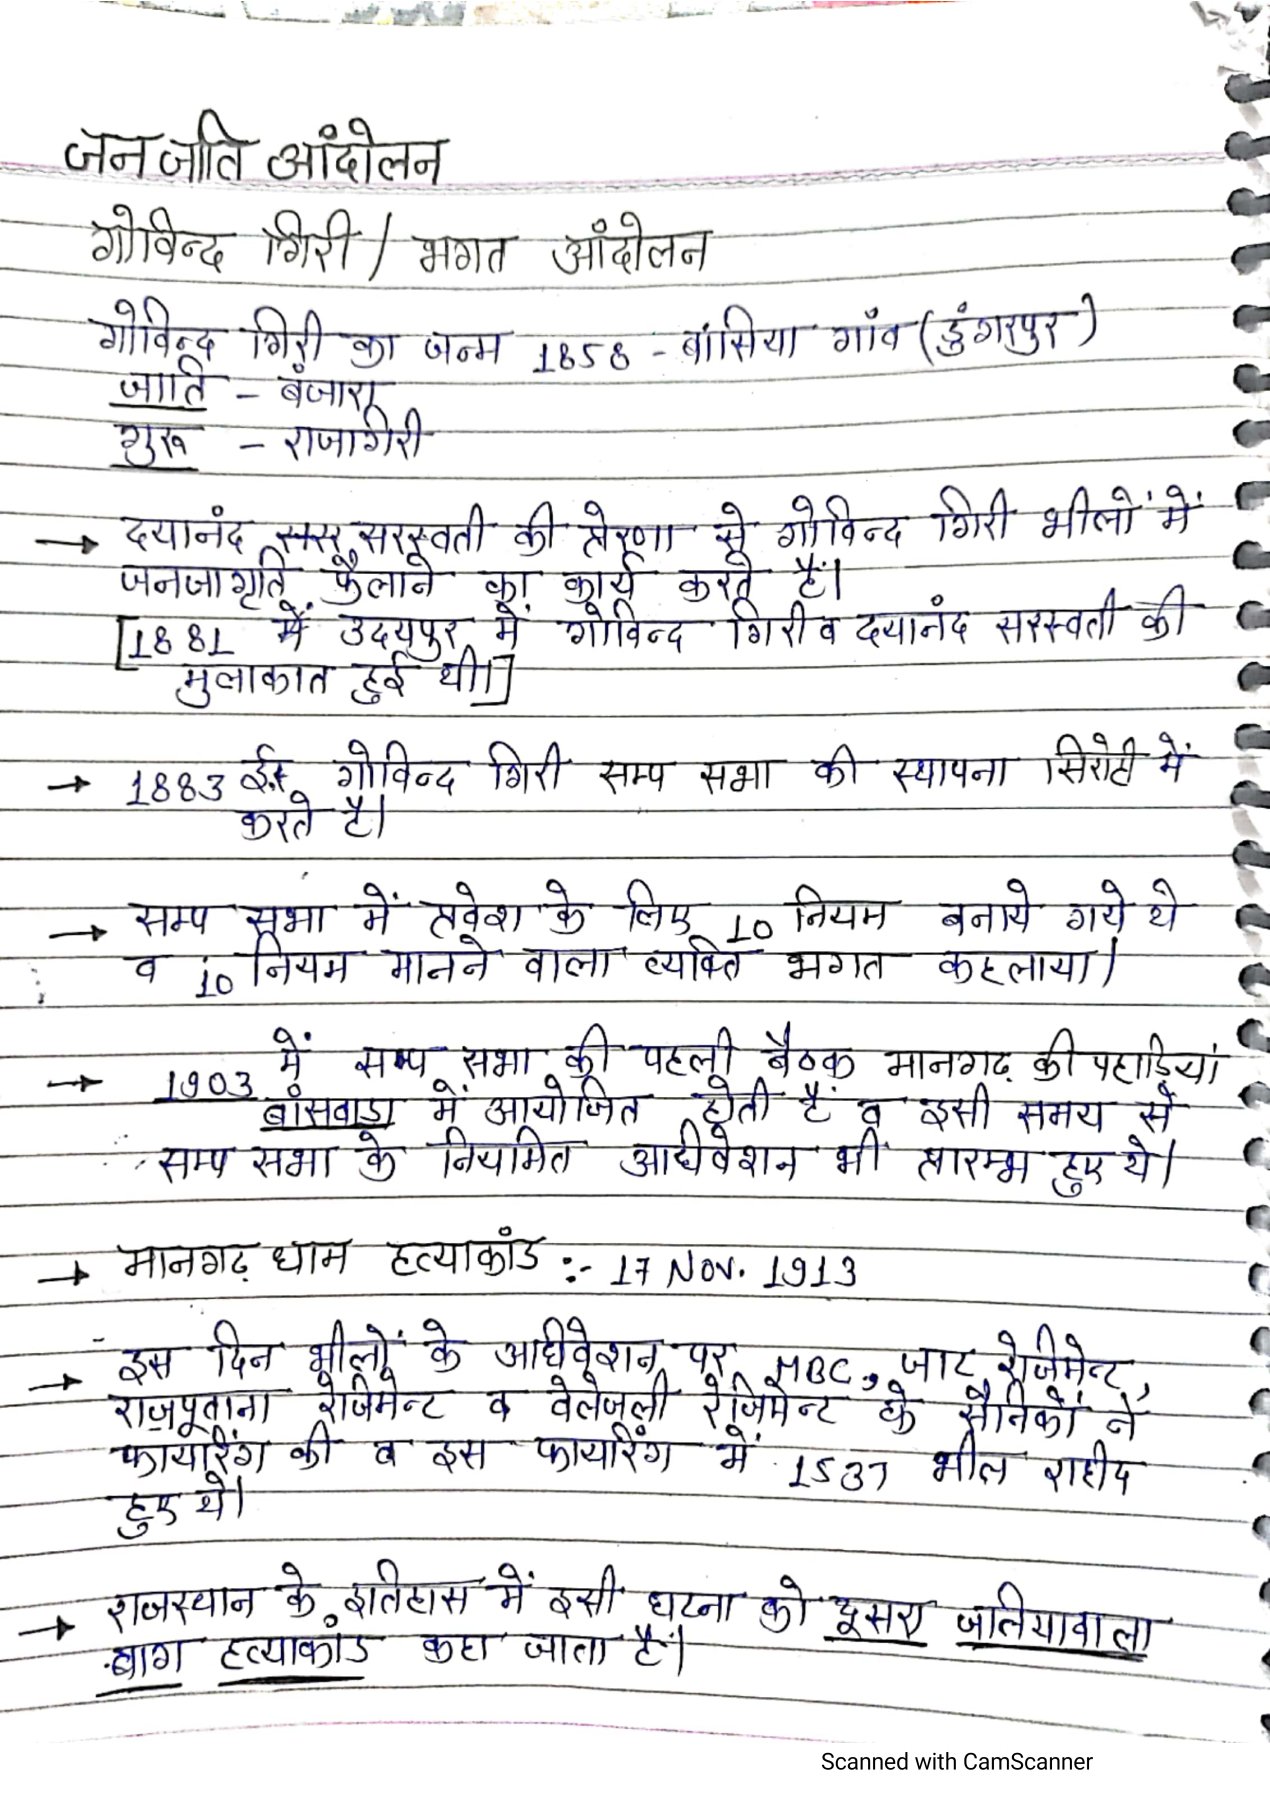 जनजाति आंदोलन
गोविन्द गिरी / भगत आंदोलन
गोविन्द गिरी का जन्म 1858 - बांसिया गांव (डुंगरपुर)
जाति - बंजारा
गुरू - राजागिरी
→ दयानंद सरस्वती की प्रेरणा से गोविन्द गिरी भीलों में
जनजागृति फैलाने का कार्य करते हैं।
[1881 में उदयपुर में गोविन्द गिरी व दयानंद सरस्वती की
मुलाकात हुई थी।]
→ 1883 ई. गोविन्द गिरी सम्प सभा की स्थापना सिरोही में
करते है।
→ सम्प सभा में प्रवेश के लिए 10 नियम बनाये गये थे
व 10 नियम मानने वाला व्यक्ति भगत कहलाया।
→ 1903 में सम्प सभा की पहली बैठक मानगढ़ की पहाड़ियां
बांसवाडा में आयोजित होती हैं व इसी समय से
सम्प सभा के नियमित अधिवेशन भी प्रारम्भ हुए थे।
→ मानगढ़ धाम हत्याकांड :- 17 Nov. 1913
→ इस दिन भीलों के अधिवेशन पर MBC, जाट रेजिमेन्ट,
राजपूताना रेजिमेन्ट व वेलेजली रेजिमेन्ट के सैनिकों ने
फायरिंग की व इस फायरिंग में 1537 भील शहीद
हुए थे।
→ राजस्थान के इतिहास में इसी घटना को दूसरा जलियावाला
बाग हत्याकांड कहा जाता है।
Scanned with CamScanner